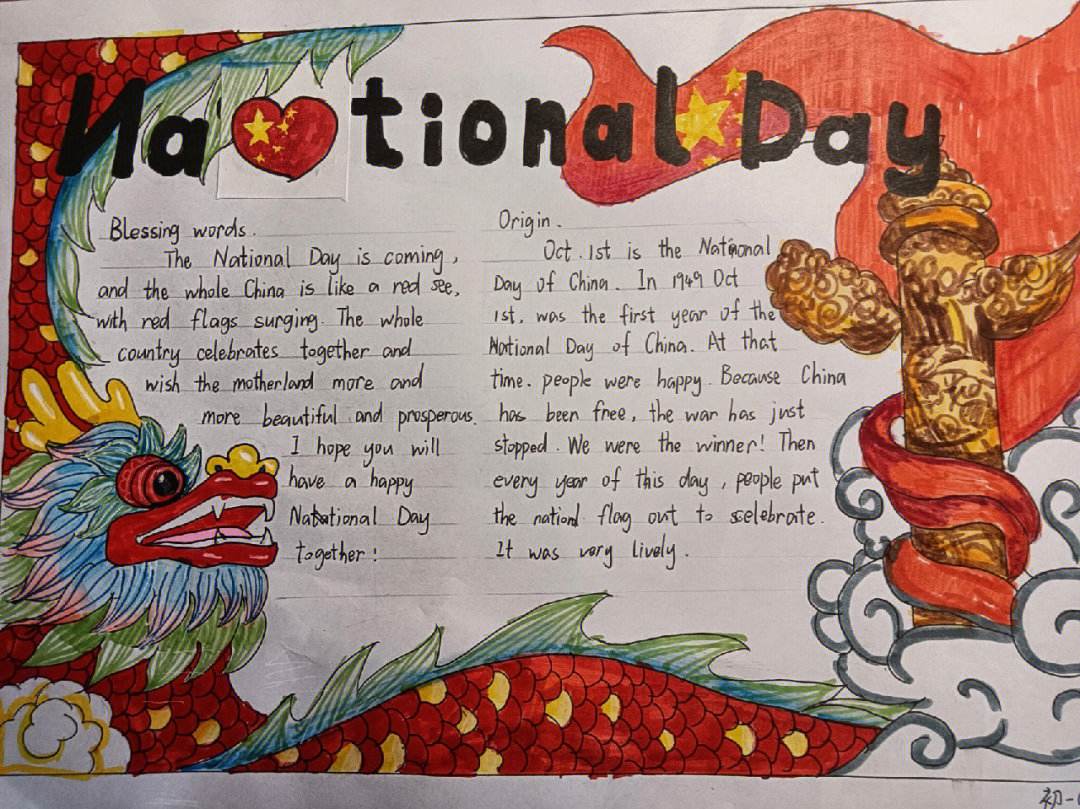 National Day
Blessing words.
The National Day is coming,
and the whole China is like a red see,
with red flags surging. The whole
country celebrates together and
wish the motherland more and
more beautiful and prosperous.
I hope you will
have a happy
National Day
together!
Origin.
Oct. 1st is the National
Day of China. In 1949 Oct
1st, was the first year of the
National Day of China. At that
time. people were happy. Because China
has been free, the war has just
stopped. We were the winner! Then
every year of this day, people put
the national flag out to celebrate.
It was very lively.
初一